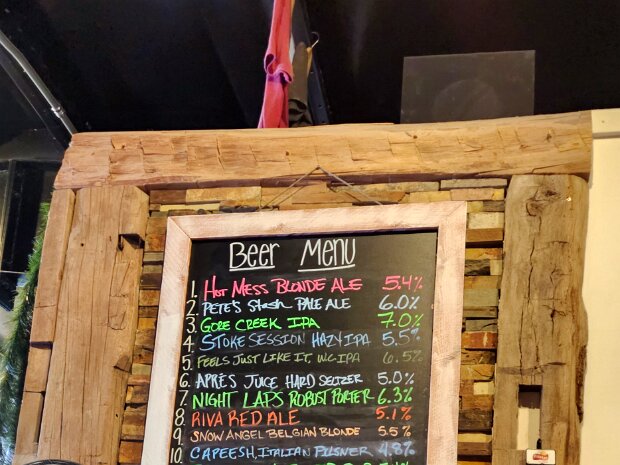 Beer Menu
1. Hot Mess Blonde Ale 5.4%
2. Pete's Stash Pale Ale 6.0%
3. Gore Creek IPA 7.0%
4 Stoke Session Hazy IPA 5.5%
5. Feels Just Like It, WC IPA 6.5%
6. Après Juice Hard Seltzer 5.0%
7. Night Laps Robust Porter 6.3%
8. Riva Red Ale 5.1%
9. Snow Angel Belgian Blonde 5.5%
10. Capeesh, Italian Pilsner 4.8%